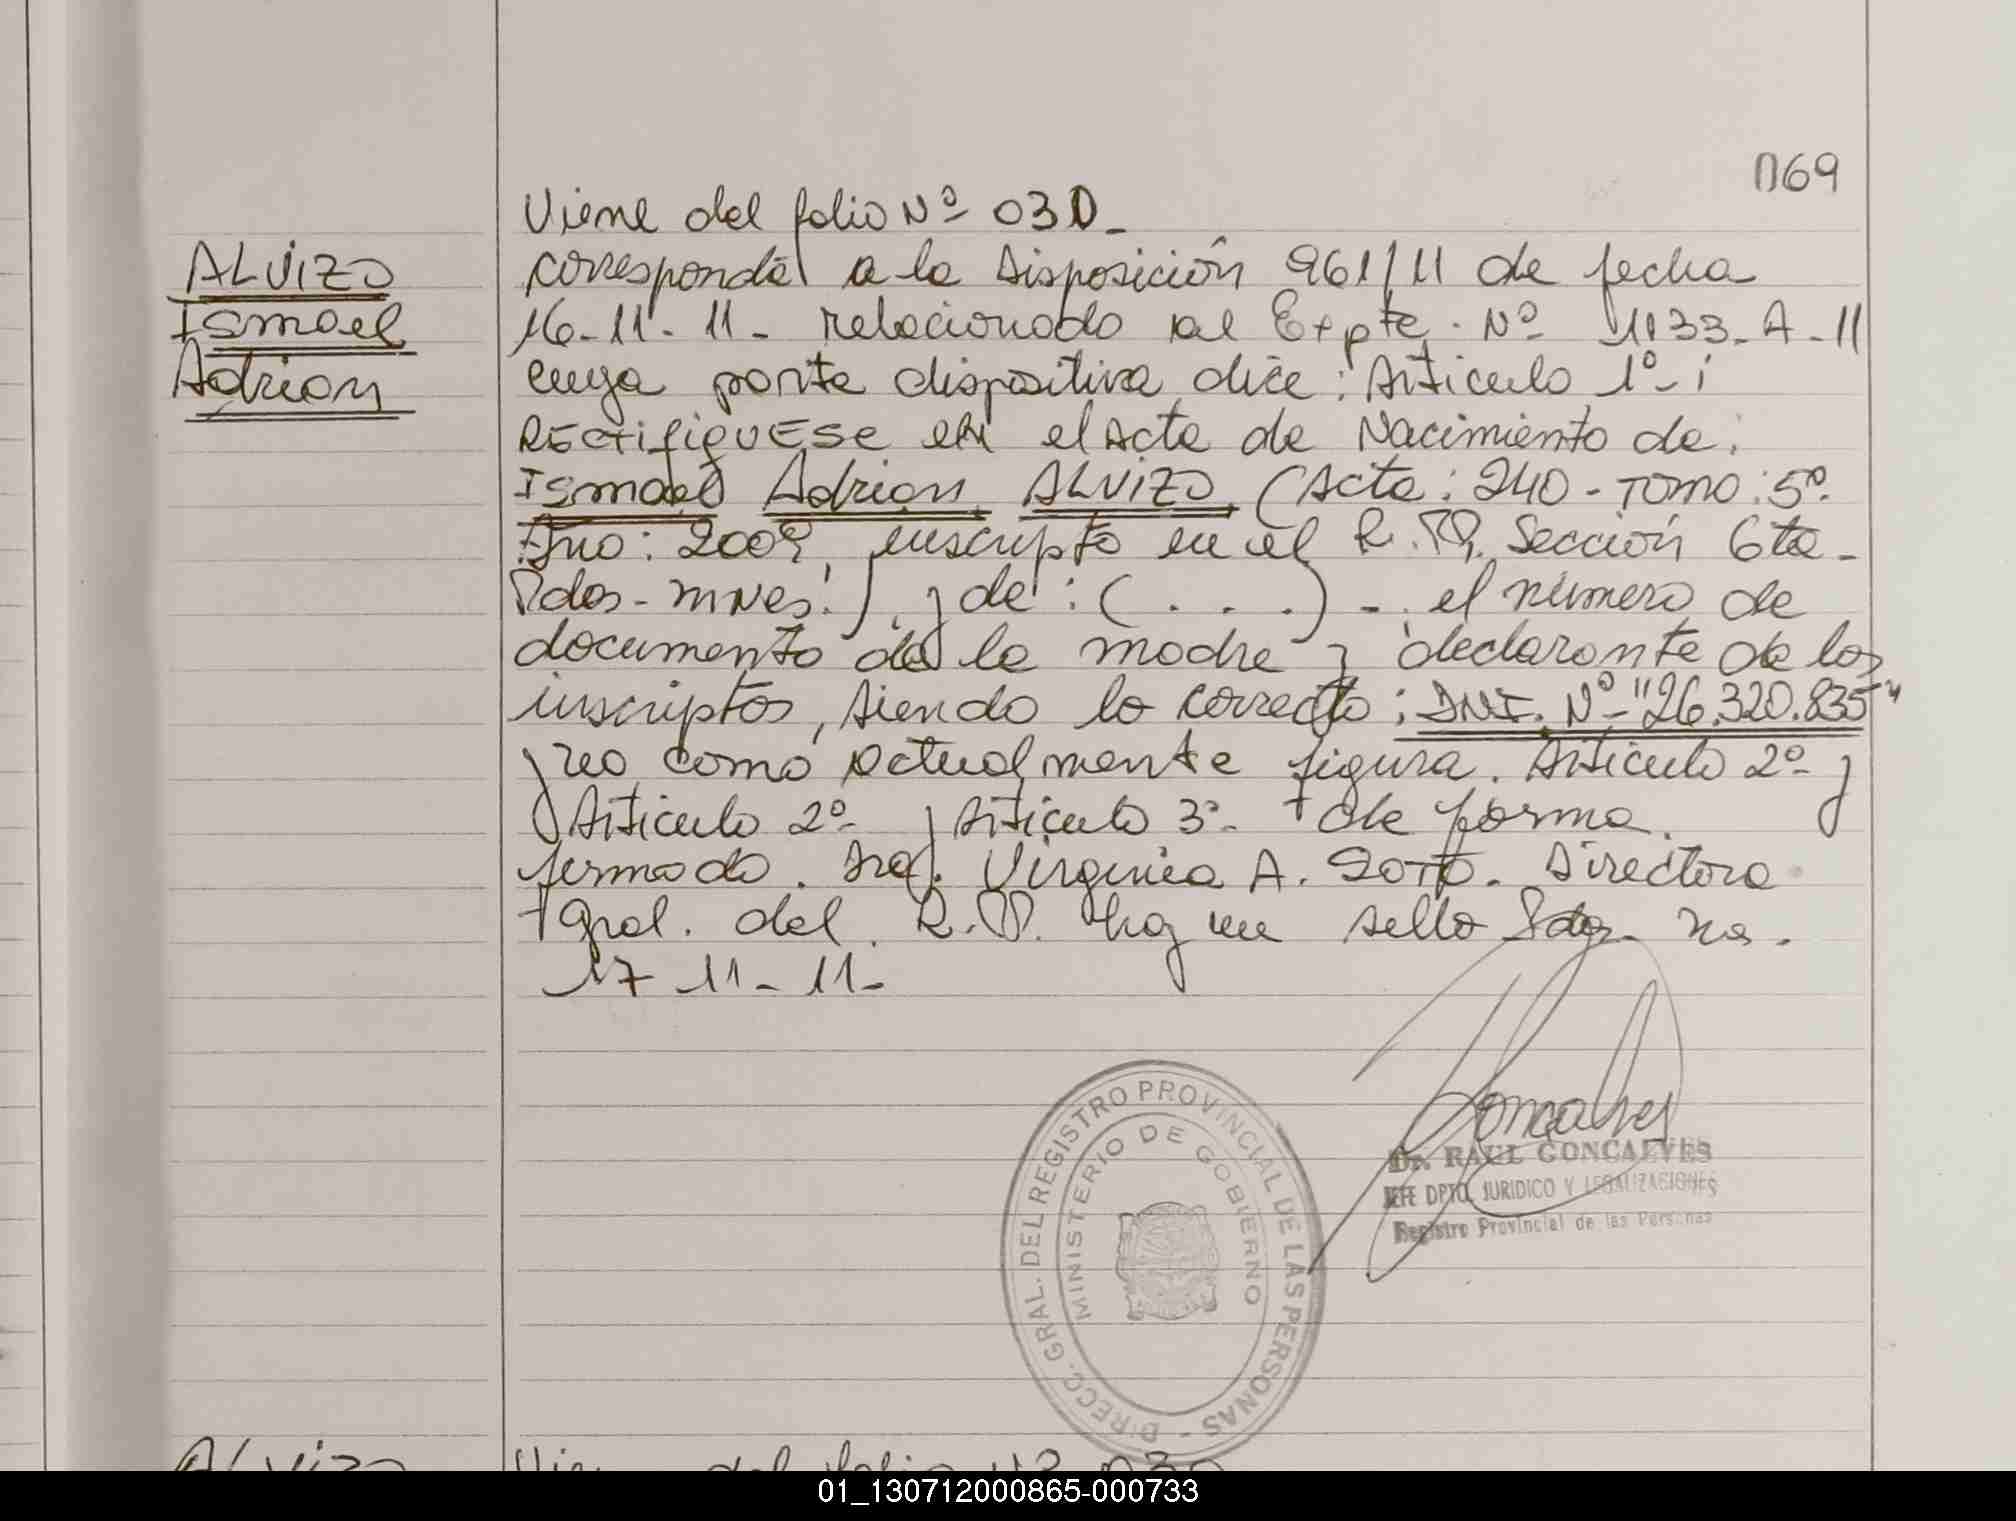 069
Viene del folio Nº 030_
ALVIZO
Ismael
Adrian
corresponde a la Disposición 961/11 de fecha
16-11-11- relacionado al Expte. Nº 1133-A-11
cuya parte dispositiva dice: Articulo 1º-:
RECtifiqUESe en el Acta de Nacimiento de:
Ismael Adrian ALVIZO (Acta: 240 - Tomo: 5º.
Año: 2009, inscripto en el R.P. Sección 6ta-
Pdas-MNes.) y de: (...) - el número de
documento de la madre y declarante de los
inscriptos, siendo lo correcto: DNI. Nº "26.320.835"
y no como actualmente figura. Articulo 2º- y
Articulo 2º- y Articulo 3º- de forma.
firmado. Virginia A. Soto. Directora
Gral. del R.P. hay un sello Pdas.
17 11-11-
DIRECC. GRAL. DEL REGISTRO PROVINCIAL DE LAS PERSONAS -
MINISTERIO DE GOBIERNO
Goncalves
Dr. RAUL GONCALVES
JEFE DPTO. JURIDICO Y LEGALIZACIONES
Registro Provincial de las Personas
ALVIZO
Viene del folio Nº 030
01_130712000865-000733